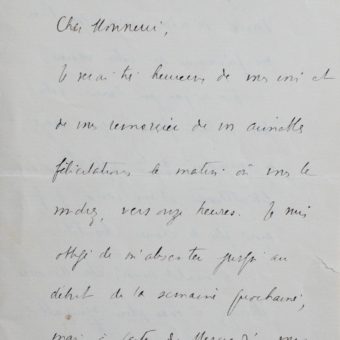 Cher Monsieur,
Je serai très heureux de vous voir et
de vous remercier de vos aimables
félicitations le matin où vous le
voudrez, vers onze heures. Je suis
obligé de m'absenter jusqu'au
début de la semaine prochaine,
mais à partir de Mercredi, vous